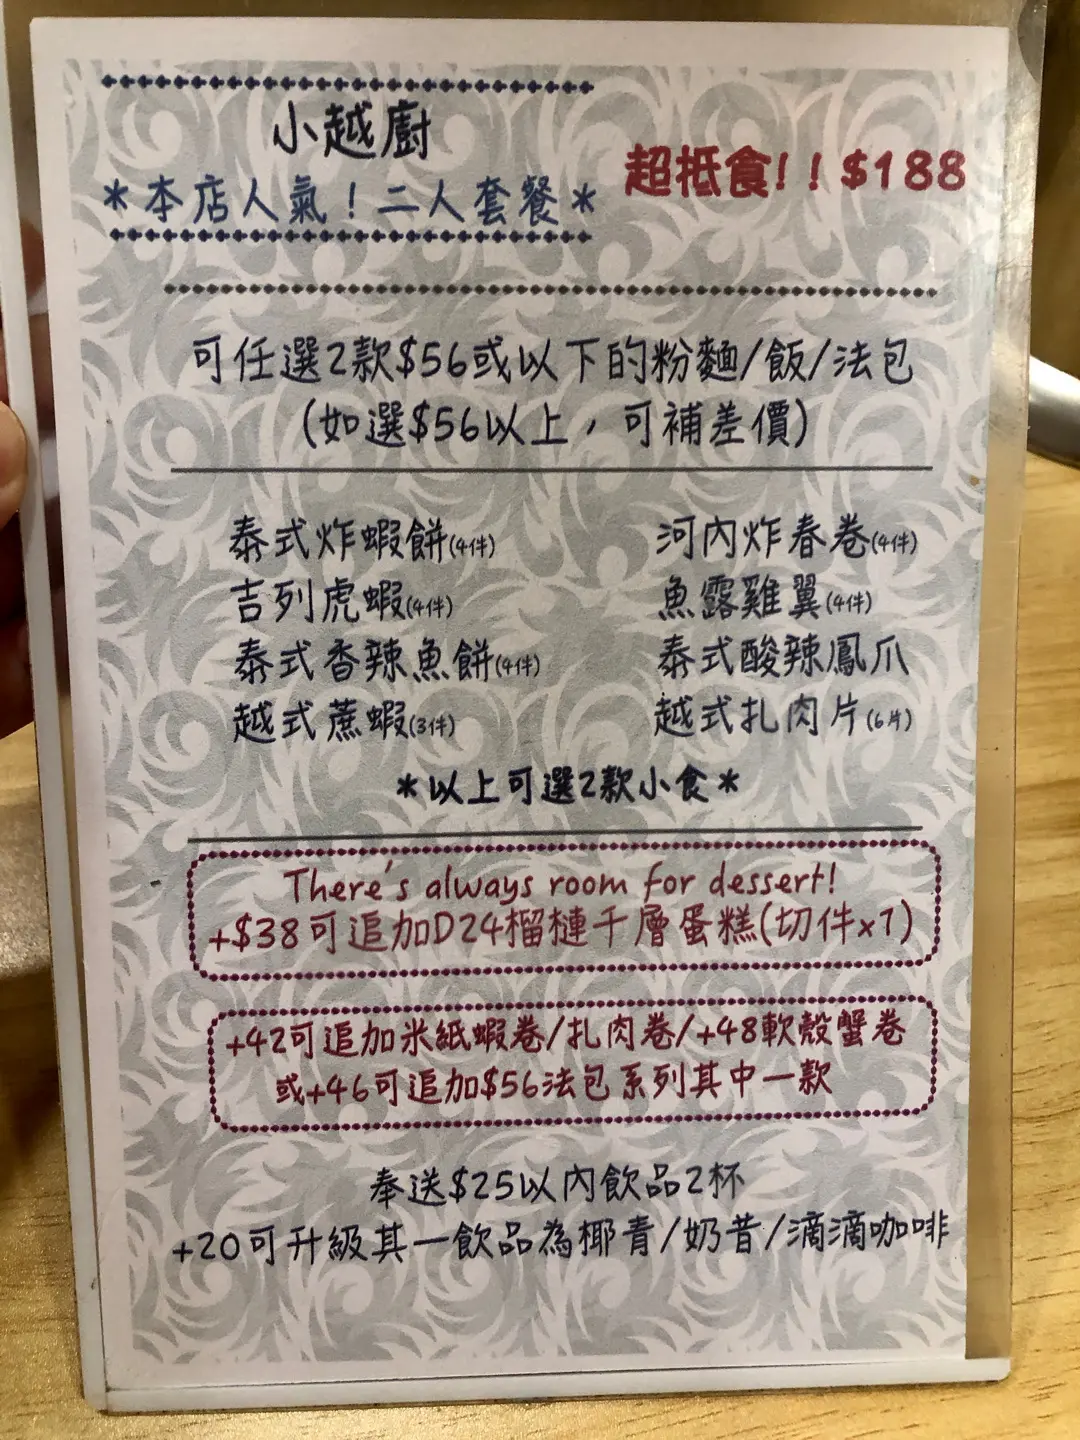 小越廚
*本店人氣！二人套餐*
超抵食!! $188
可任選2款$56或以下的粉麵/飯/法包
(如選$56以上，可補差價)
泰式炸蝦餅(4件)
河內炸春卷(4件)
吉列虎蝦(4件)
魚露雞翼(4件)
泰式香辣魚餅(4件)
泰式酸辣鳳爪
越式蔗蝦(3件)
越式扎肉片(6片)
*以上可選2款小食*
There's always room for dessert!
+$38可追加D24榴槤千層蛋糕(切件x1)
+42可追加米紙蝦卷/扎肉卷/+48軟殼蟹卷
或+46可追加$56法包系列其中一款
奉送$25以內飲品2杯
+20可升級其一飲品為椰青/奶昔/滴滴咖啡